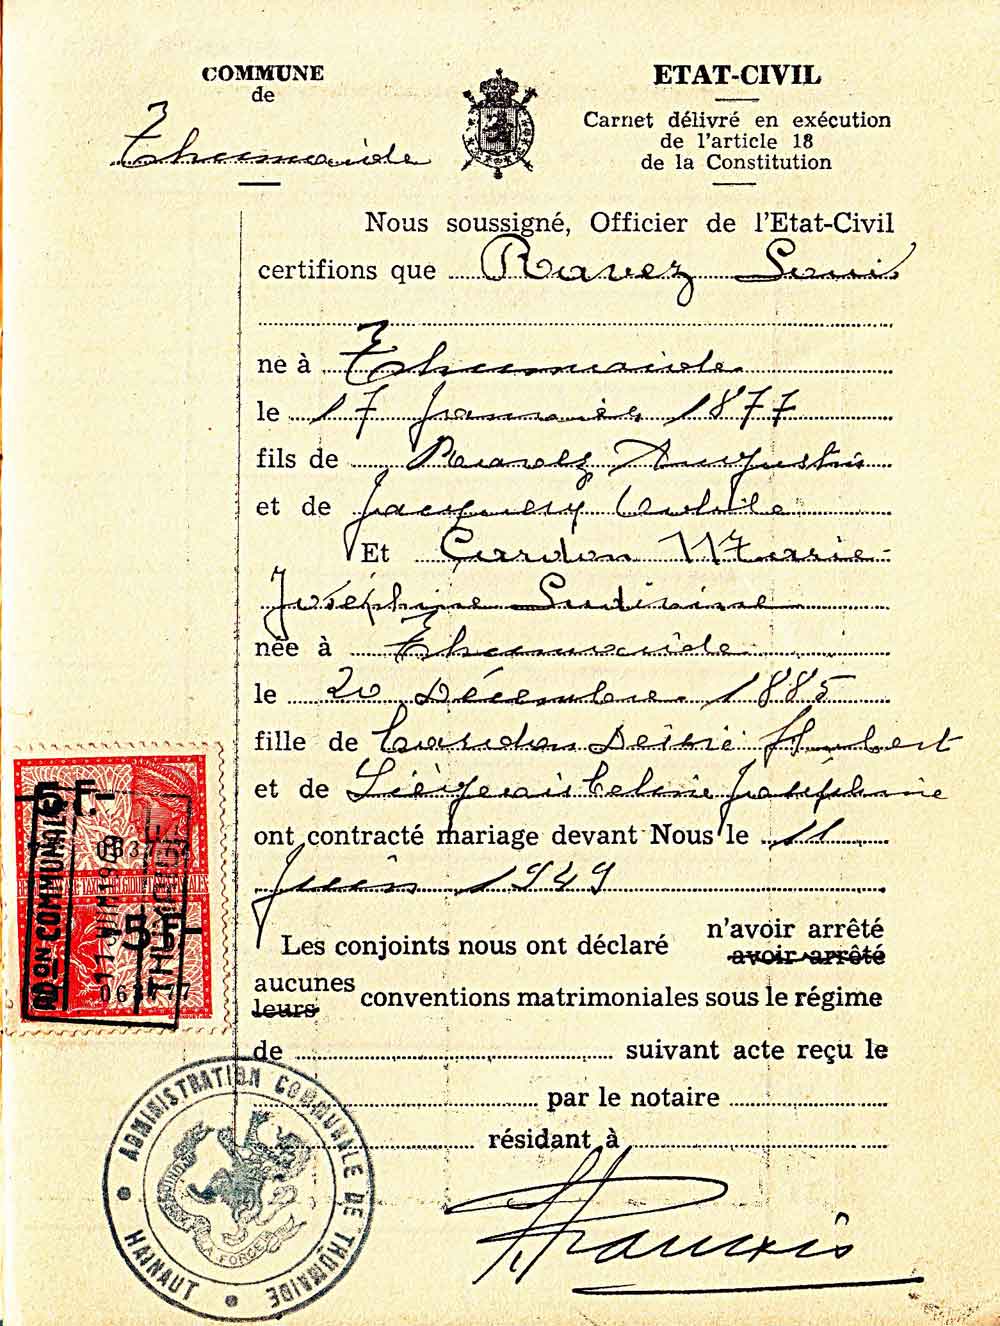 COMMUNE
de
Thumaide
ETAT-CIVIL
Carnet délivré en exécution
de l'article 18
de la Constitution
Nous soussigné, Officier de l'Etat-Civil
certifions que Ravez Louis
ne à Thumaide
le 17 Janvier 1877
fils de Ravez Augustin
et de Jacquery
Et Cardon Marie-
Joséphine Ludivine
née à Thumaide
le 20 Décembre 1885
fille de Cardon Désiré Hubert
et de Liégeois Celine Joséphine
ont contracté mariage devant Nous le 11
Juin 1949
Les conjoints nous ont déclaré n'avoir arrêté
avoir arrêté
aucunes
leurs conventions matrimoniales sous le régime
de suivant acte reçu le
par le notaire
résidant à
5 F.-
ON COMMUNALE
5 F.-
063777
ADMINISTRATION COMMUNALE DE THUMAIDE
HAINAUT
LA FORCE
Francois